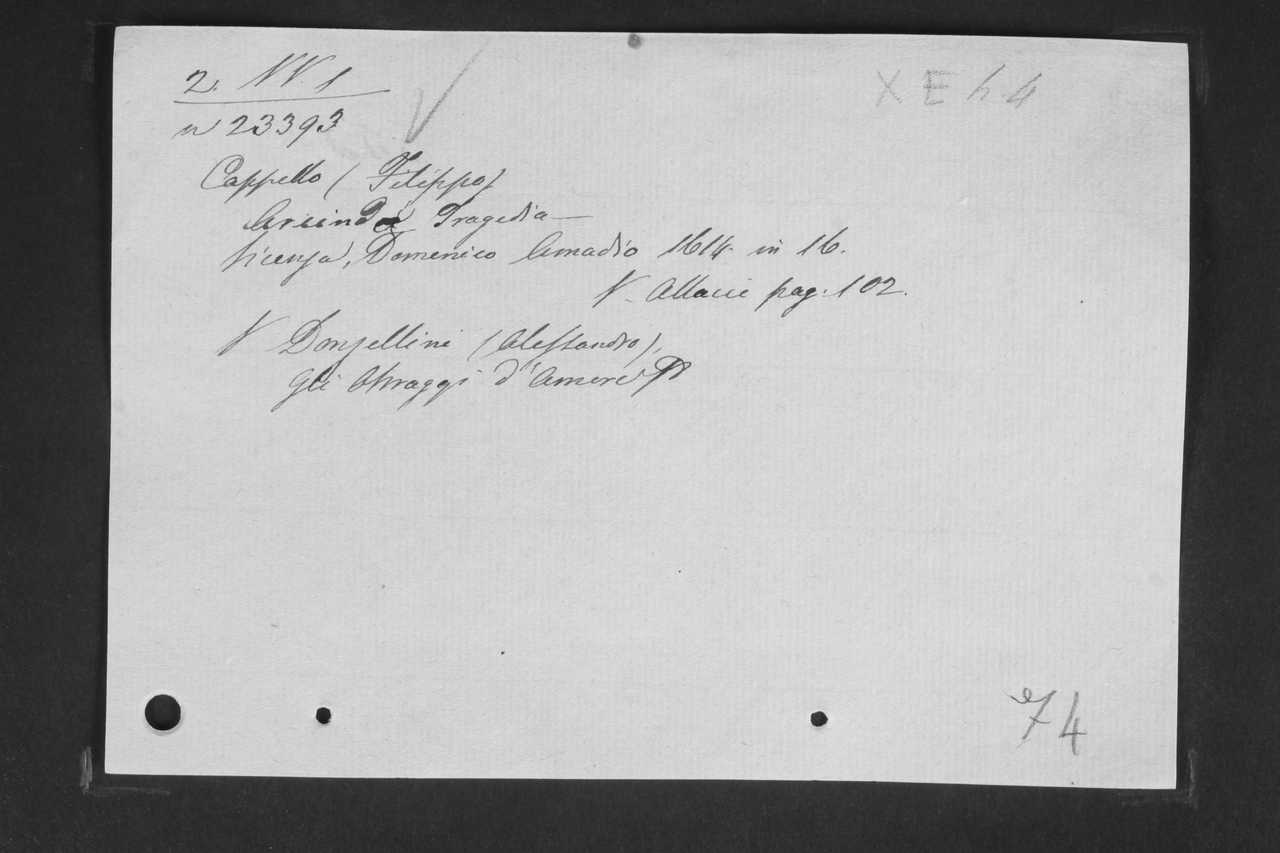 2. VV. 1
XE h 4
n 23393
Cappello (Filippo)
Arcinda Tragedia —
Vicenza, Domenico Amadio 1614. in 16.
V. Allacci pag. 102.
V Donzellini (Alessandro),
Gli Oltraggi d'Amore
74